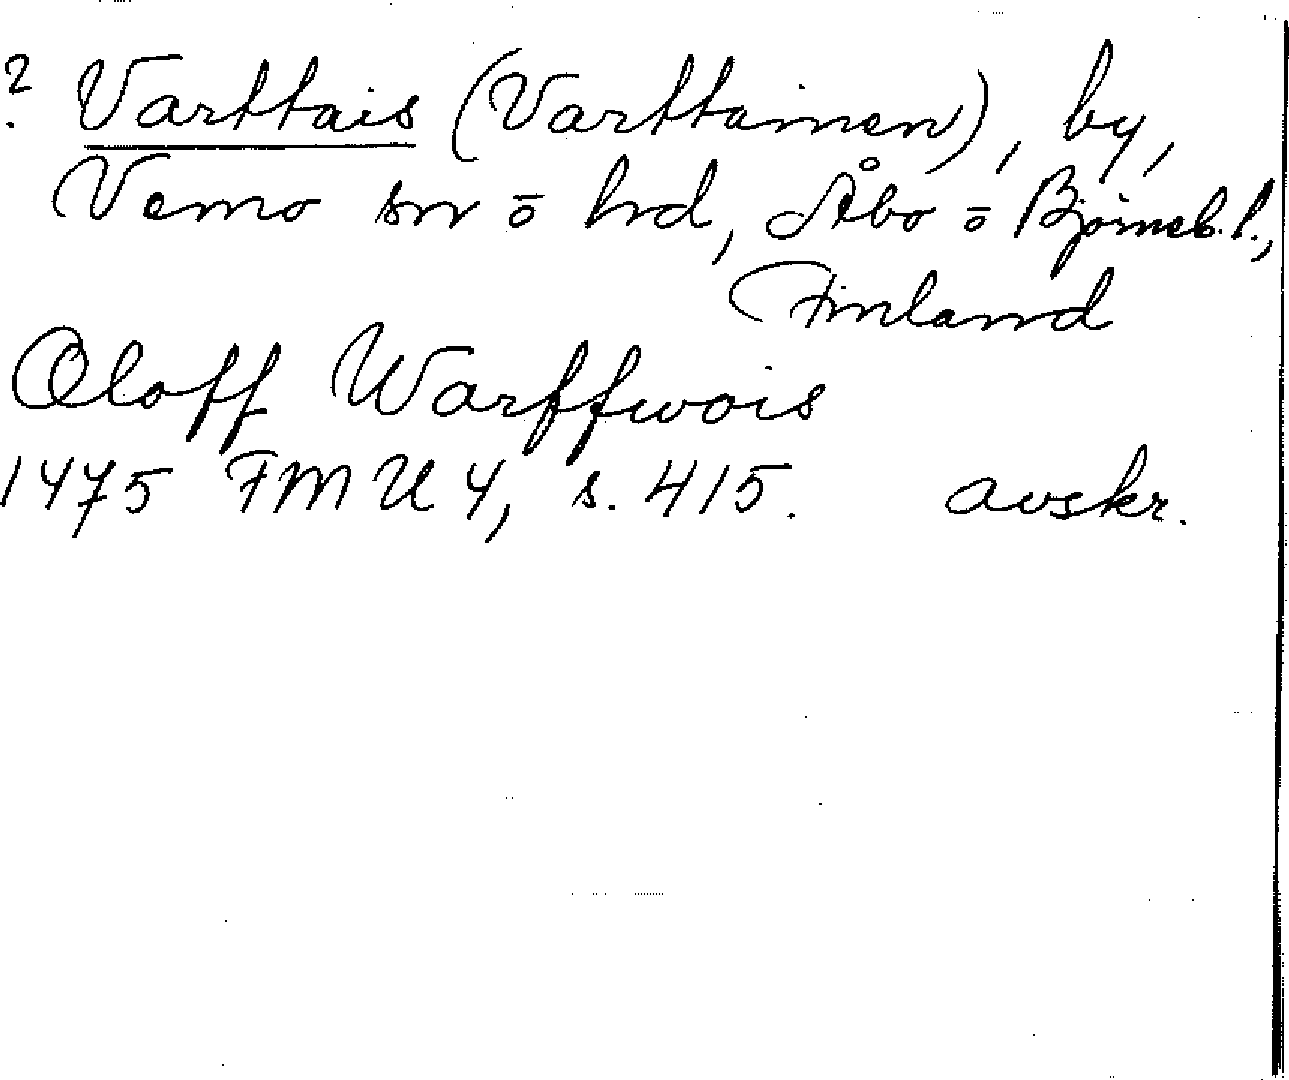 ? Varttais (Varttainen), by,
Vemo sn ō hrd, Åbo ō Björneb. l.,
Finland
Oloff Warffwois
1475 FMU 4, s. 415. avskr.